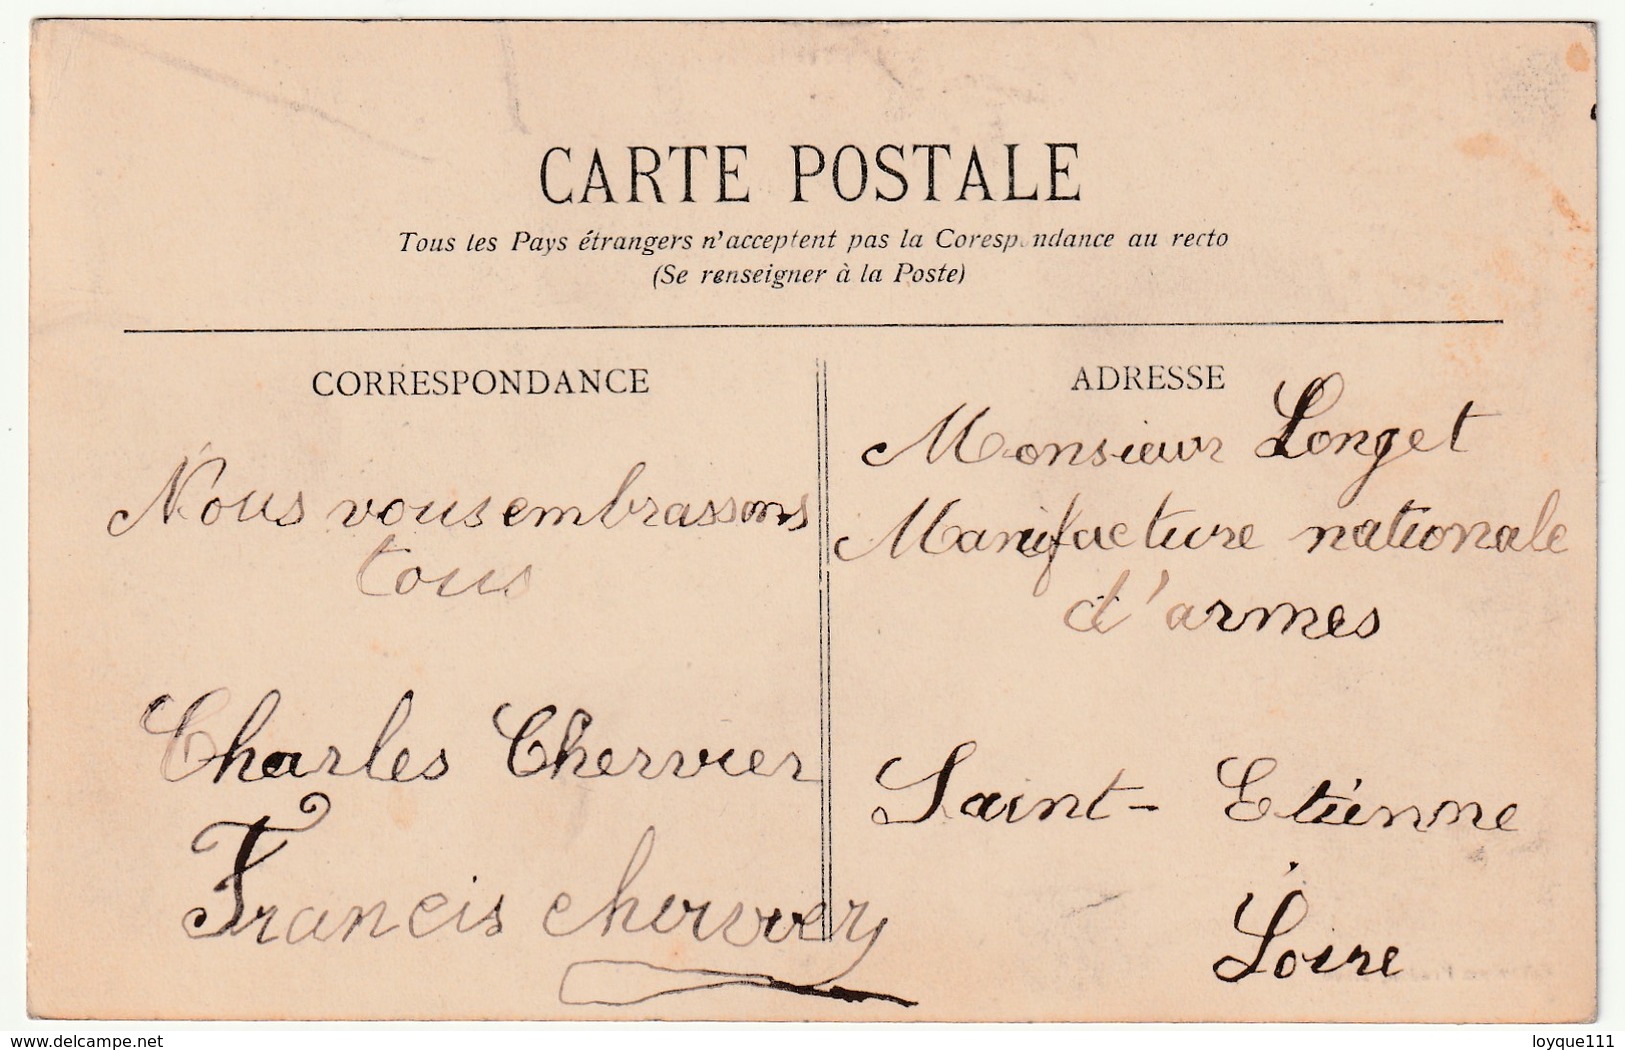 CARTE POSTALE
Tous les Pays étrangers n'acceptent pas la Corespondance au recto
(Se renseigner à la Poste)
CORRESPONDANCE
Nous vous embrassons
tous
Charles Chervier
Francis Chervier
ADRESSE
Monsieur Longet
Manufacture nationale
d'armes
Saint-Etienne
Loire
delcampe.net
loyque111